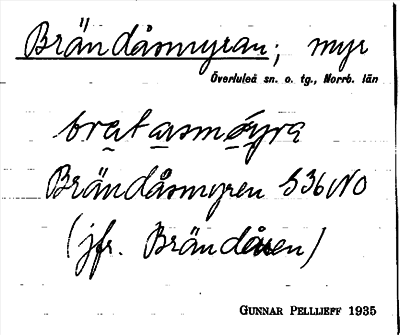 Brändåsmyran; myr
Överluleå sn. o. tg., Norrb. län
Brändåsmyren S36NO
(jfr. Brändåsen)
GUNNAR PELLIJEFF 1935